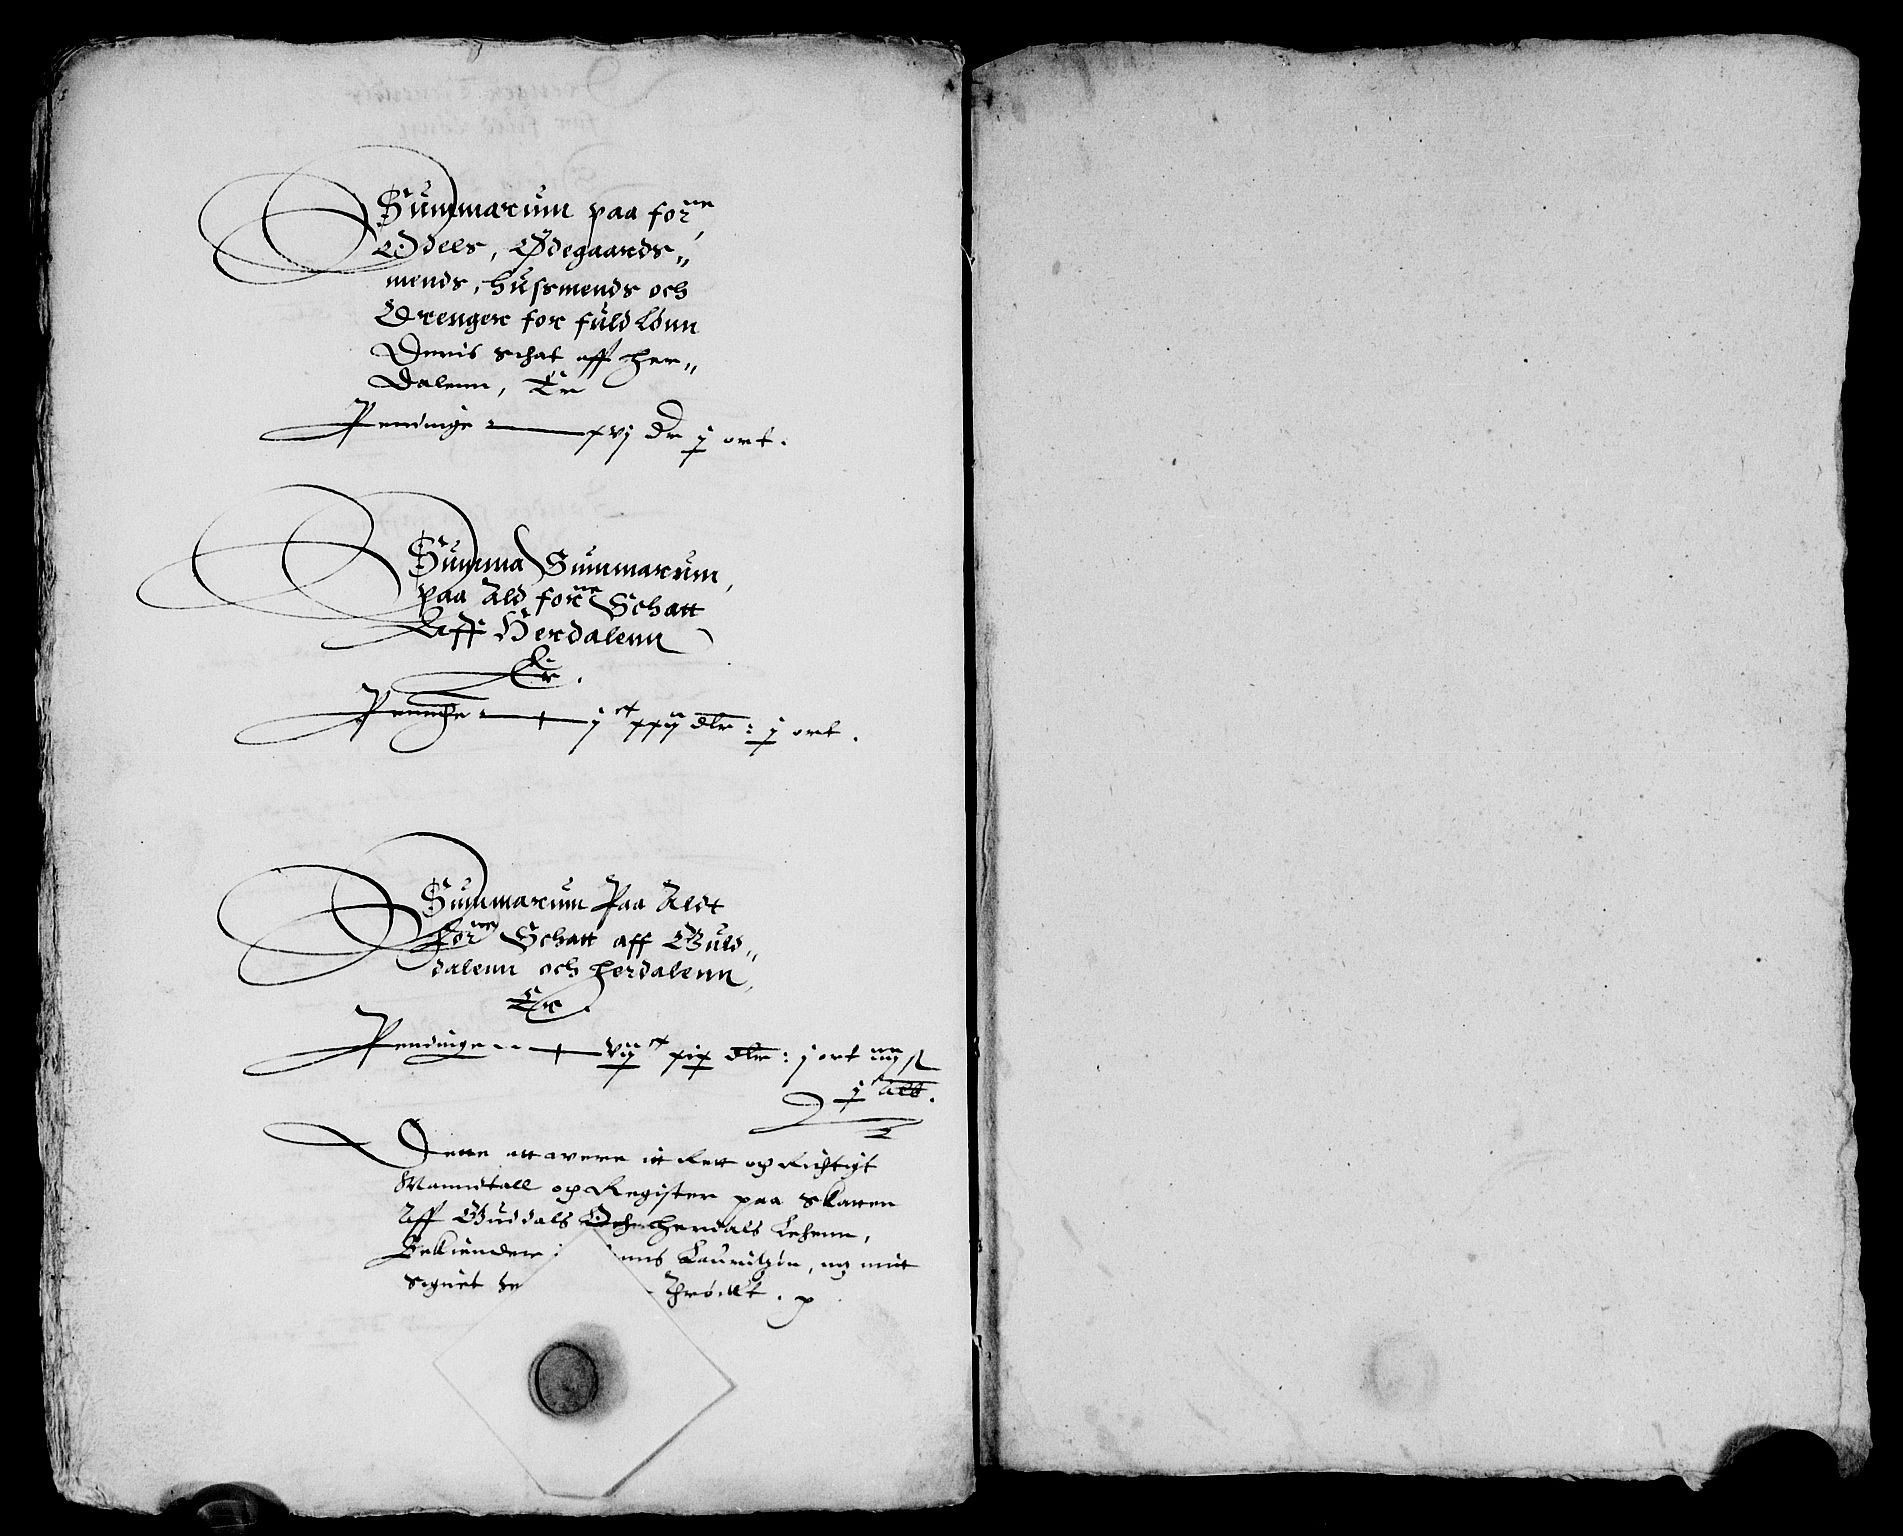 Summarum paa forne
Odels, Ødegaards„
mends, hussmends och
Drenger for fuld Lønn
Deris schat aff Her„
dalenn, Er
Pendinge — xvj dr j ort.
Summa Summarum,
paa Ald forne Schatt
Aff Herdalenn
Er.
Penninge — j ct xxij dlr: j ort.
Summarum Paa Aldt
forne Schatt aff Guld„
dalenn och Herdalenn,
Er.
Pendinge — vij ct xix dlr: j ort iiij ß
j alb.
Dette att were itt Rett og Richtigt
Manndtall og Register paa Skatten
Aff Guddals Och Herdals Lehenn,
Bekiender ... Lauridzøn, mz mitt
Signet ... Thrøckt.